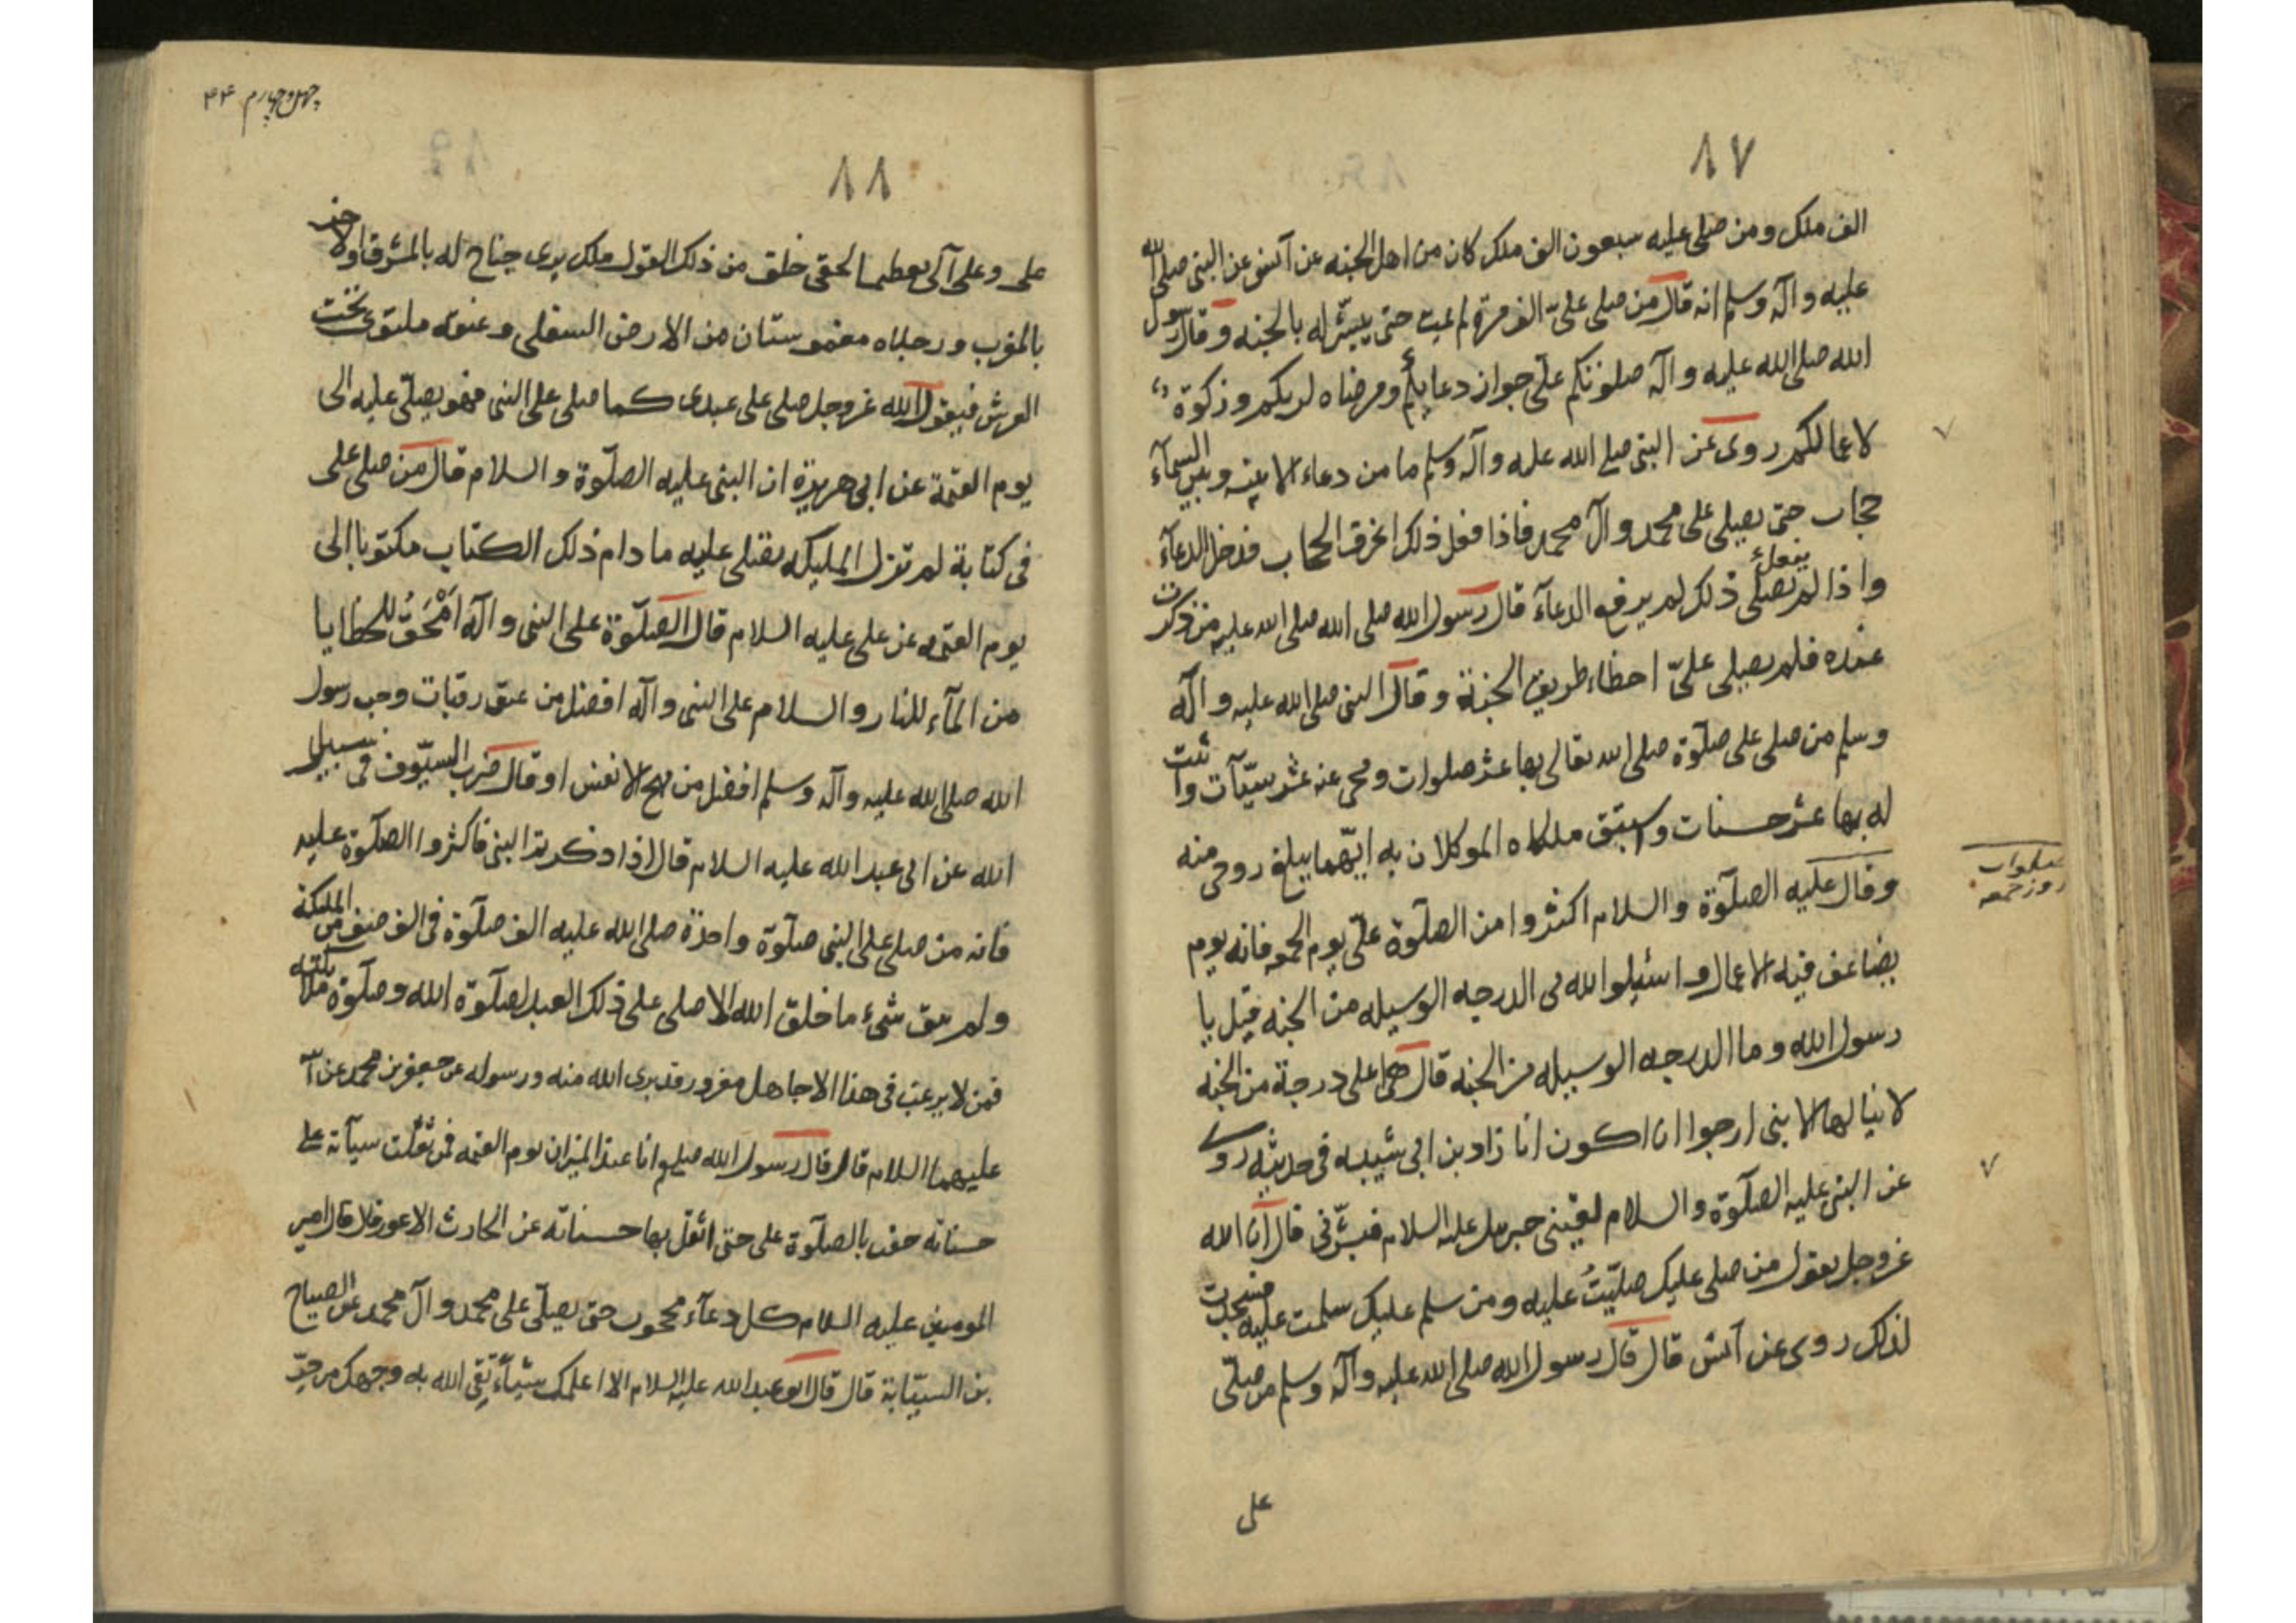 ٨٧
الف ملك ومن صلى عليه سبعون الف ملك كان من اهل الجنه عن آنس عن البنى صلى الله
عليه وآله وسلم انه قال من صلى علىّ الف مرة لم يمت حتى يبشّر له بالجنه وقال رسول
الله صلى الله عليه وآله صلوتكم علىّ جواز دعايكم ومرضاه لربكم وزكوة
لاعمالكم روى عن البنى صلى الله عليه وآله وسلم ما من دعاء الا بينه وبين السمآء
حجاب حتى يصلى على محمد وآل محمد فاذا فعل ذلك انخرق الحجاب فدخل الدعآء
واذا لم يفعل ذلك لم يرفع الدعآء قال رسول الله صلى الله صلى الله عليه من ذكرت
عنده فلم يصلى علىّ اخطاء طريق الجنة وقال البنى صلى الله عليه وآله
وسلم من صلى على صلوة صلى الله تعالى بها عشر صلوات ومحى عنه عشر سيّآت واثبت
له بها عشر حسنات واستبق ملكاه الموكلان به ايّهما يبلغ روحى منه
وقال عليه الصلوة والسلام اكثروا من الصلوة علىّ يوم الجمعه فانه يوم
يضاعف فيه الاعمال واسئلوا الله لى الدرجه الوسيله من الجنه قيل يا
رسول الله وما الدرجه الوسيله من الجنه قال هى اعلى درجة من الجنه
لا ينالها الا بنى ارجوا ان اكون انا زاد بن ابى شيبه فى حديثه روى
عن البنى عليه الصلوة والسلام لقينى جبرئيل عليه السلام فبشّرنى قال ان الله
عزوجل يقول من صلى عليك صلّيتُ عليه ومن سلم عليك سلمت عليه فسجدت
لذلك روى عن آنس قال قال رسول الله صلى الله عليه وآله وسلم من صلّى
على
صلوات
روز جمعه
چهل وچهارم ۴۴
٨٨
على وعلى آلى تعظيما لحقى خلق من ذلك القول ملك يرى جناح له بالمشرق والاخر
بالمغرب ورجلاه مغموستان من الارض السفلى وعنقه ملتوى تحت
العرش فيقول الله عزوجل صلى على عبدى كما صلى على النبى فهو يصلّى عليه الى
يوم القيمة عن ابى هريرة ان البنى عليه الصلوة والسلام قال من صلى على
فى كتابة لم تزل المليكه تصلى عليه ما دام ذلك الكتاب مكتوبا الى
يوم القيمه عن على عليه السلام قال الصلوة على النبى وآله اَمْحَقُ للخطايا
من المآء للنار والسلام على النبى وآله افضل من عتق رقبات وحب رسول
الله صلى الله عليه وآله وسلم افضل من مهج الانفس او قال ضرب السيّوف فى سبيل
الله عن ابى عبد الله عليه السلام قال اذا ذكرتم البنى فاكثروا الصلوة عليه
فانه من صلى على البنى صلوة واحدة صلى الله عليه الف صلوة فى الف صنف من المليكة
ولم يبق شىء ما خلق الله الا صلى على ذلك العبد لصلوة الله وصلوة ملائكته
فمن لا يرغب فى هذا الا جاهل مغرور قد برى الله منه ورسوله عن جعفر بن محمد عن
عليهما السلام قال قال رسول الله صلعم انا عند الميزان يوم القيمه فمن ثقلت سيآته على
حسناته حفت بالصلوة على حتى اثقل بها حسناته عن الحارث الاعور قال قال امير
المومنين عليه السلام كل دعآء محجوب حتى يصلّى على محمد وآل محمد عن الصباح
بن السيّابة قال قال ابو عبد الله عليه السلام الا اعلمك شيأً يقى الله به وجهك من حرّ